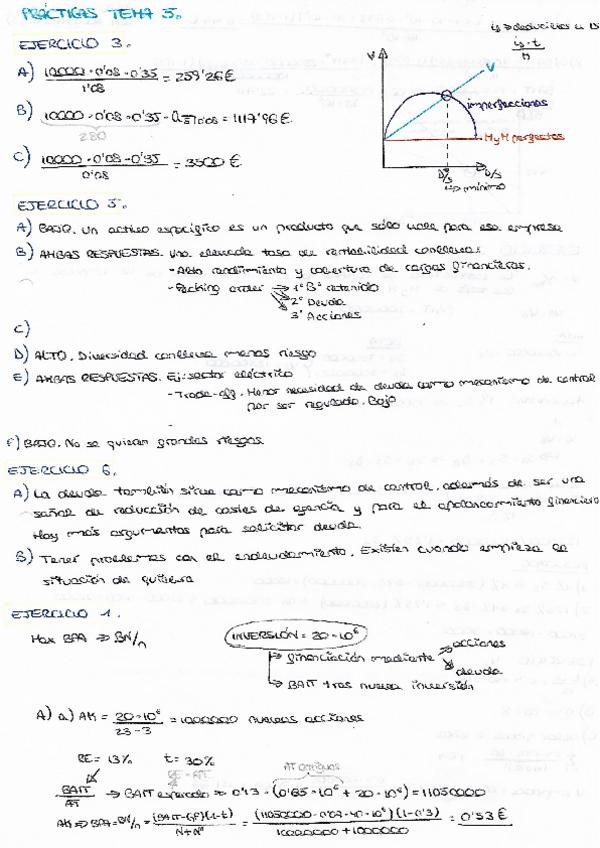 PRÁCTICAS TEMA 5.
EJERCICIO 3.
A) 10000 · 0'08 · 0'35 / 1'08 = 259'26 €
B) 10000 · 0'08 · 0'35 · = 1117'96 €
280
C) 10000 · 0'08 · 0'35 / 0'08 = 3500 €
V
V
imperfecciones
MyM perfectos
D/S
mínimo
EJERCICIO 5.
A) BAJO. Un activo específico es un producto que sólo vale para esa empresa
B) AMBAS RESPUESTAS. Una elevada tasa de rentabilidad conlleva:
- Alto rendimiento y cobertura de cargas financieras.
- Pecking order → 1º Bº retenido
2º Deuda
3º Acciones
C)
D) ALTO. Diversidad conlleva menos riesgo
E) AMBAS RESPUESTAS. Ej: sector eléctrico
- Trade-off. Menor necesidad de deuda como mecanismo de control
por ser regulado. Bajo
F) BAJO. No se quieren grandes riesgos
EJERCICIO 6.
A) La deuda también sirve como mecanismo de control, además de ser una
señal de reducción de costes de agencia y para el apalancamiento financiero
Hay más argumentos para solicitar deuda.
B) Tener problemas con el endeudamiento. Existen cuando empieza la
situación de quiebra
EJERCICIO 1.
Max BPA ⇒ BN/n
INVERSIÓN = 20 · 10⁶
→ financiación mediante → acciones
deuda
→ BAIT tras nueva inversión
A) a) AK = 20 · 10⁶ / 23 - 3 = 1000000 nuevas acciones
RE = 13% t = 30%
AT antiguos
BAIT / AT → BAIT esperado = 0'13 · (0'65 · 10⁶ + 20 · 10⁶) = 11050000
AK ⇒ BPA = BN/n = (BAIT - GF)(1 - t) / N + Nº = (11050000 - 0'07 · 40 · 10⁶)(1 - 0'3) / 10000000 + 1000000 = 0'53 €